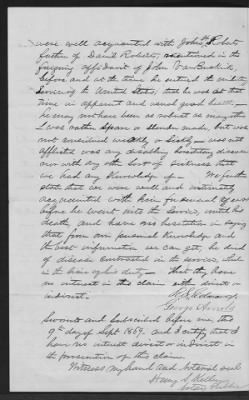 were well acquainted with John Roberts
father of David Roberts, mentioned in the
foregoing affidavit of John Van Buskirk,
before and at the time he entered the military
Service of the United States, that he was at that
time in apparent and usual good health
he may not have been as robust as many others
was rather spare or slender made, but was
not considered weakly or sickly — was not
afflicted with any disability, hereditary disease
nor with any other sort of sickness that
we had any knowledge of — We further
state that we were well and intimately
acquainted with him for several years
before he went into the service, until his
death, and have no hesitation in saying
that from our personal knowledge and
the best information we can get, he died
of disease contracted in the service, while
in the line of his duty — that they have
no interest in this claim either direct or
indirect.
George
Sworn to and subscribed before me, this
9th day of Sept 1869, and I certify that I
have no interest direct or indirect in
the prosecution of this claim.
Witness my hand and Notarial seal
Notary Public